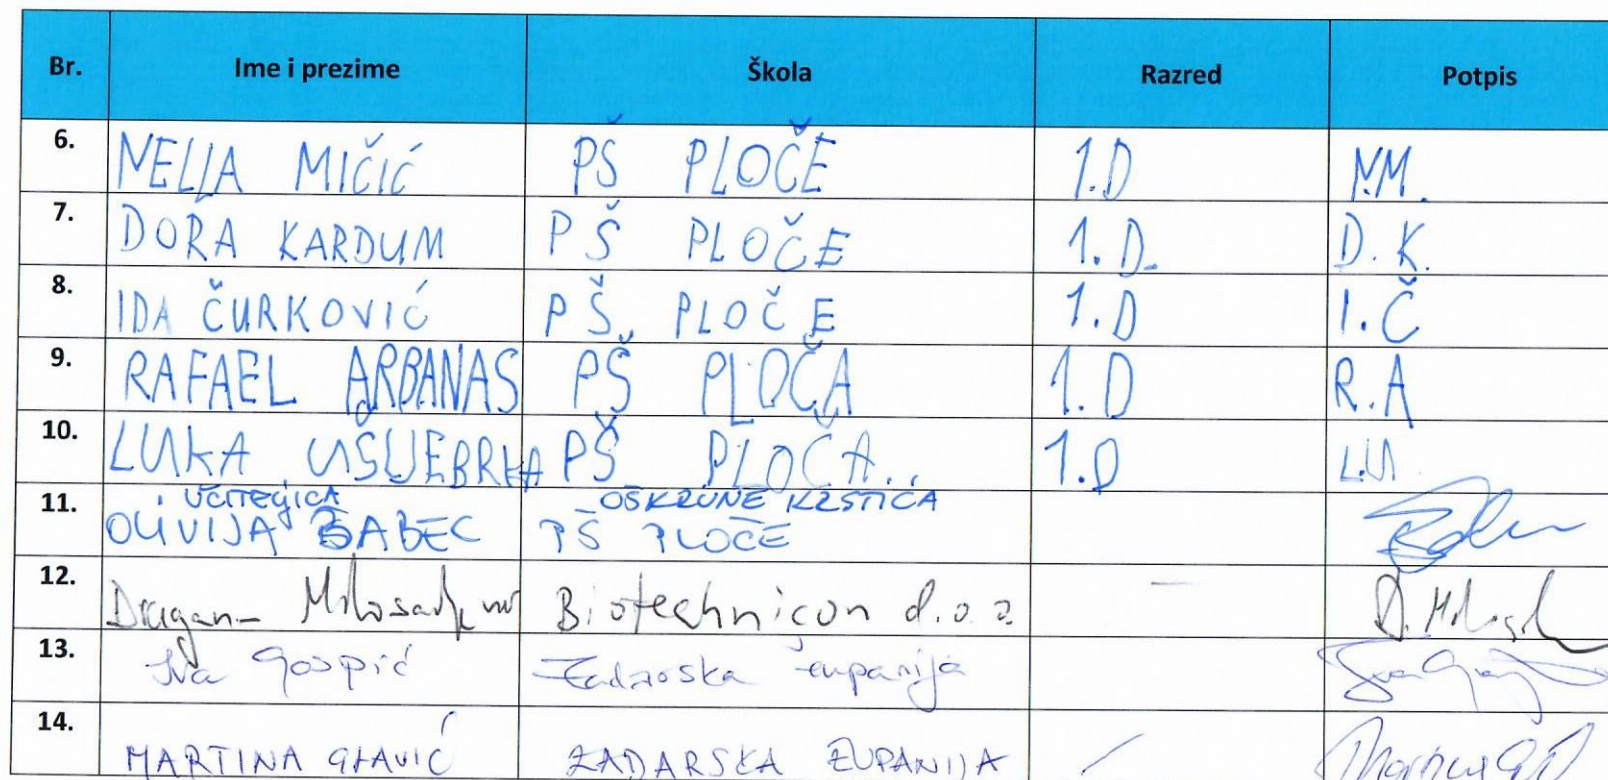 Br. Ime i prezime Škola Razred Potpis
6. NELLA MIČIĆ PŠ PLOČE 1.D N.M.
7. DORA KARDUM PŠ PLOČE 1.D. D.K.
8. IDA ČURKOVIĆ PŠ PLOČE 1.D I.Č
9. RAFAEL ARBANAS PŠ PLOČA 1.D R.A
10. LUKA USLJEBRKA PŠ PLOČA.. 1.D L.U.
UČITELJICA OŠ KRUNE KRSTIĆA
11. OLIVIJA BABEC PŠ PLOČE
12. Biotechnicon d.o.o
13. Iva Gospić Zadarska županija
14. MARTINA GLAVIĆ ZADARSKA ŽUPANIJA /